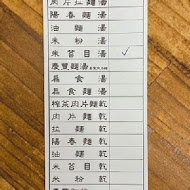 肉片拉麵湯
陽春麵湯
油麵湯
米粉湯
米苔目湯
扁食湯
扁食麵湯
榨菜肉片麵乾
肉片麵乾
拉麵乾
陽春麵乾
油麵乾
米苔目乾
米粉乾